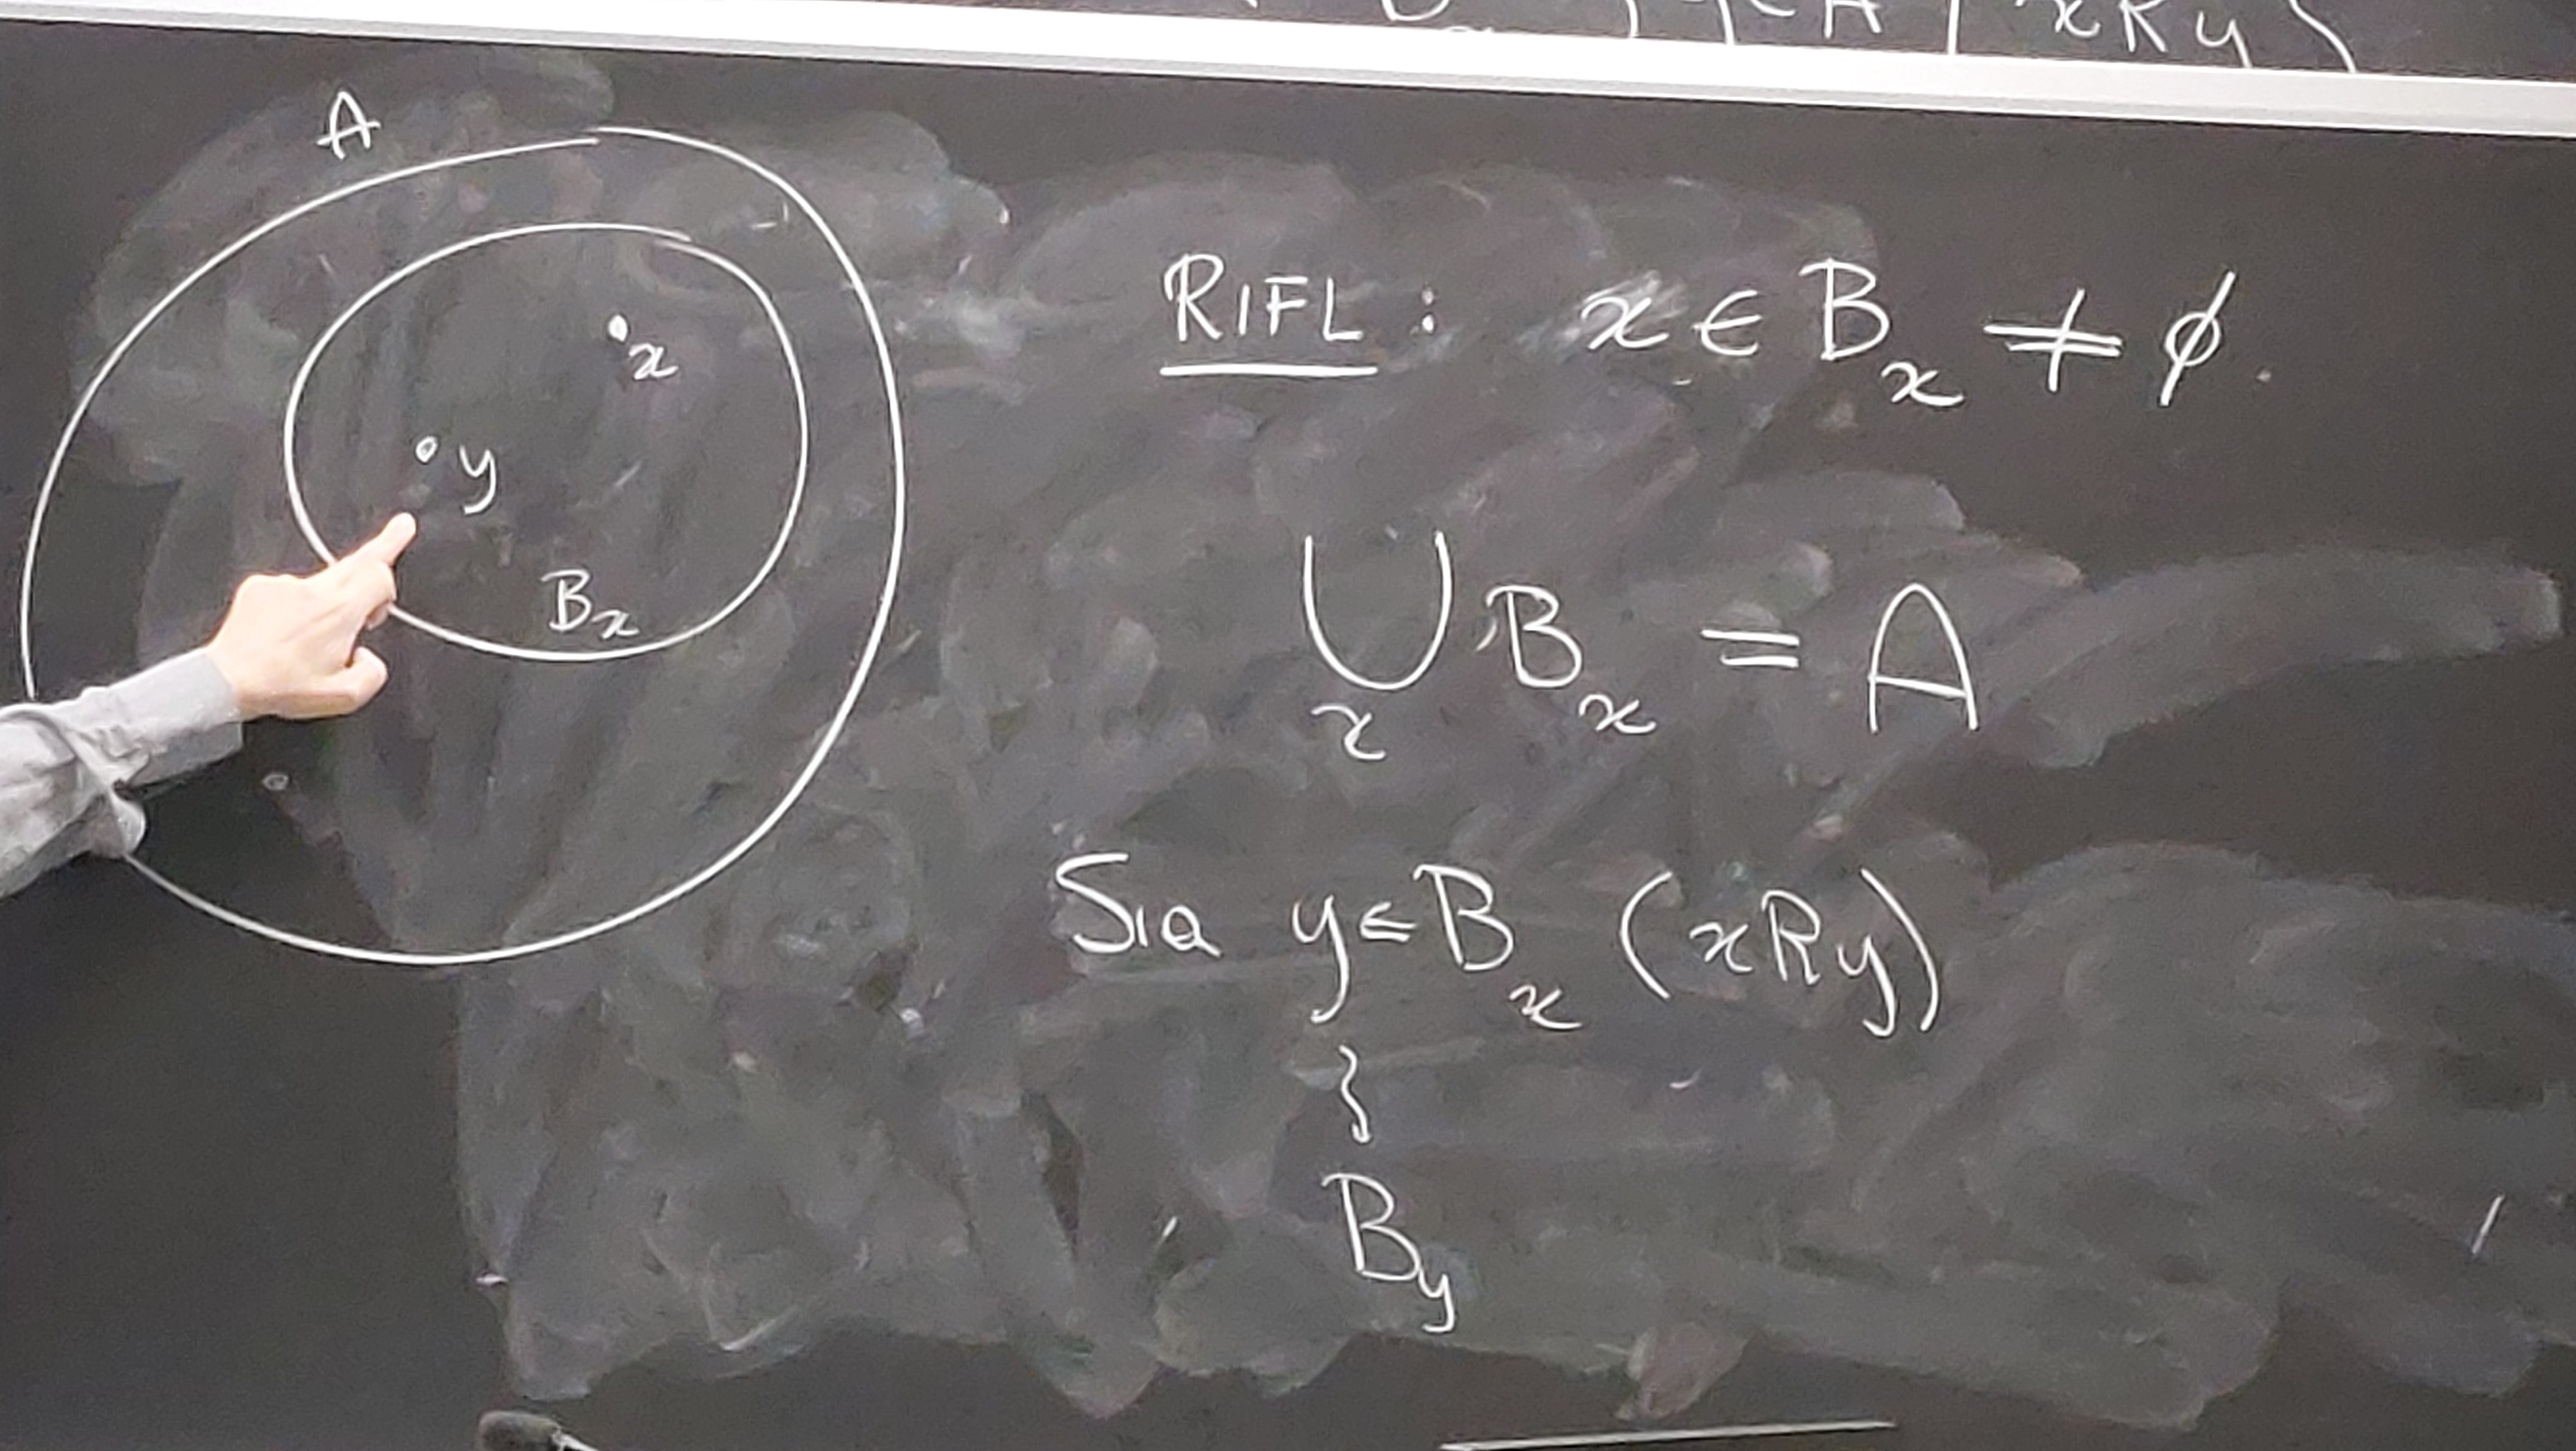 A | xRy }
A
x
y
Bx
RIFL : x ∈ Bx ≠ ∅.
⋃x Bx = A
Sia y ∈ Bx (xRy)
}
By